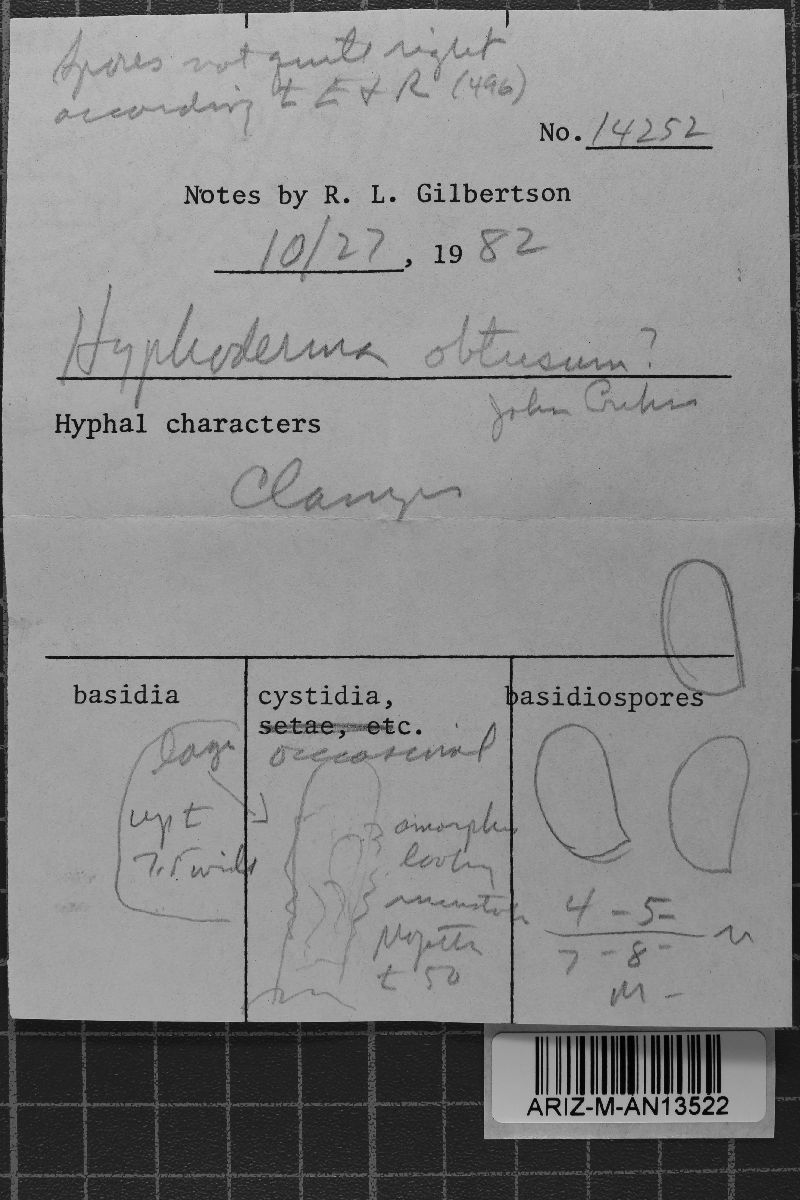 Spores not quite right
according to E & R (496)
No. 14252
Notes by R. L. Gilbertson
10/27, 19 82
Hyphoderma obtusum?
John
Hyphal characters
Clamps
basidia
cystidia,
setae, etc.
basidiospores
large
up to
7.5 wide
occasional
amorphous
looking
to 50
4 - 5
7 - 8 μ
M -
ARIZ-M-AN13522